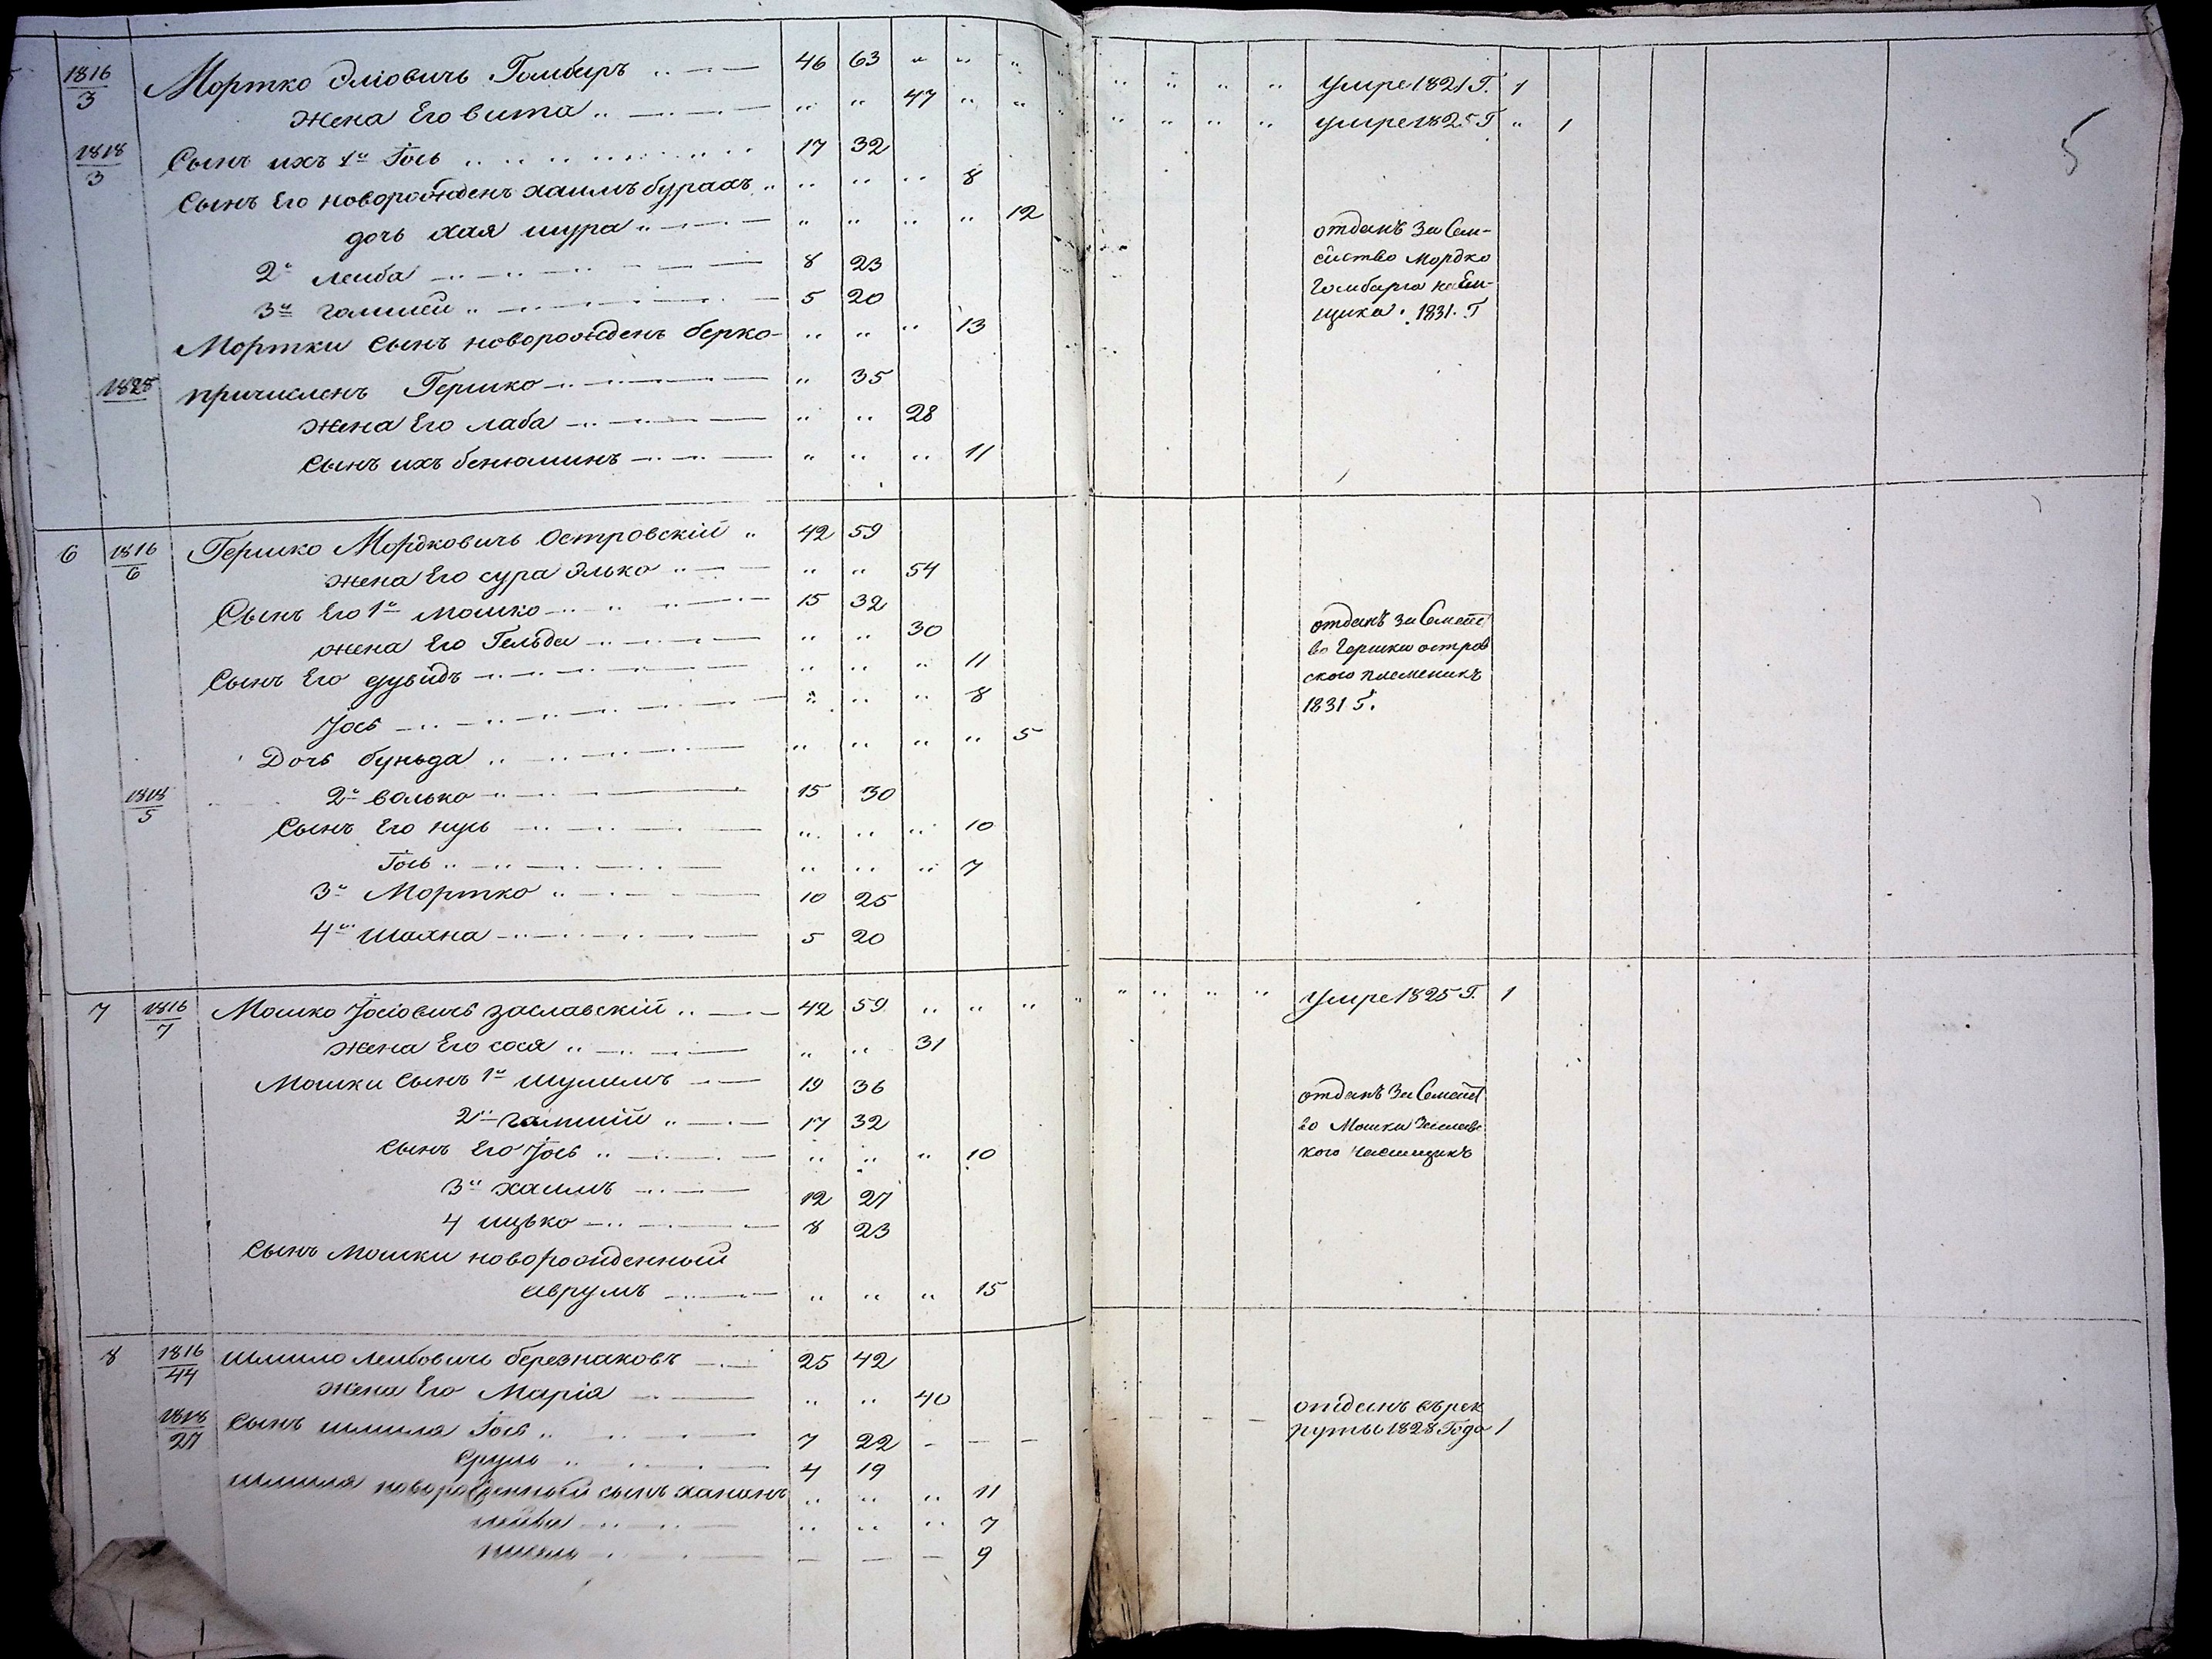 1816/3 Мортко Элiовичъ Гомберъ 46 63 умре 1821 Г. 1
жена Его вита 47 умре 1825 Г 1
5
1818/3 Сынъ ихъ 1й Iось 17 32
Сынъ Его новорожденъ хаимъ бурахъ 8
дочь хая шура 12
2й леиба 8 23
3й 5 20
отданъ за Сем-
ейство Мордко
Гомбарга наем-
щика. 1831. Г
Мортки Сынъ новорожденъ берко 13
1828 причисленъ Гершко 35
жена Его лаба 28
Сынъ ихъ бенюминъ 11
6 1816/6 Гершко Мордковичъ Островскiй 42 59
жена Его сура Элько 54
Сынъ Его 1й мошко 15 32
жена Его Гельда 30
Сынъ Его дувидъ 11
Iось 8
Дочь буньда 5
отданъ за Семейст
во Гершки остров
ского племеникъ
1831 Г.
1818/5 2й волько 15 30
Сынъ Его нусь 10
Iось 7
3й Мортко 10 25
4й Шахна 5 20
7 1816/7 Мошко Iосiовичъ заславскiй 42 59 умре 1825 Г. 1
жена Его сося 31
Мошки Сынъ 1й шулимъ 19 36
2й 17 32
Сынъ Его Iось 10
3й хаимъ 12 27
4 ицько 8 23
отданъ за Семейст
во Мошки Заслав
кого наемщикъ
Сынъ Мошки новорожденный
аврумъ 15
8 1816/44 Шмило Лейбовичъ березнаковъ 25 42
жена Его Марiя 40
1818/27 Сынъ шмила Iось 7 22
отданъ въ рек
руты 1828 Года 1
Сруль 4 19
Шмиля новорожденный сынъ хананъ 11
лейба 7
9